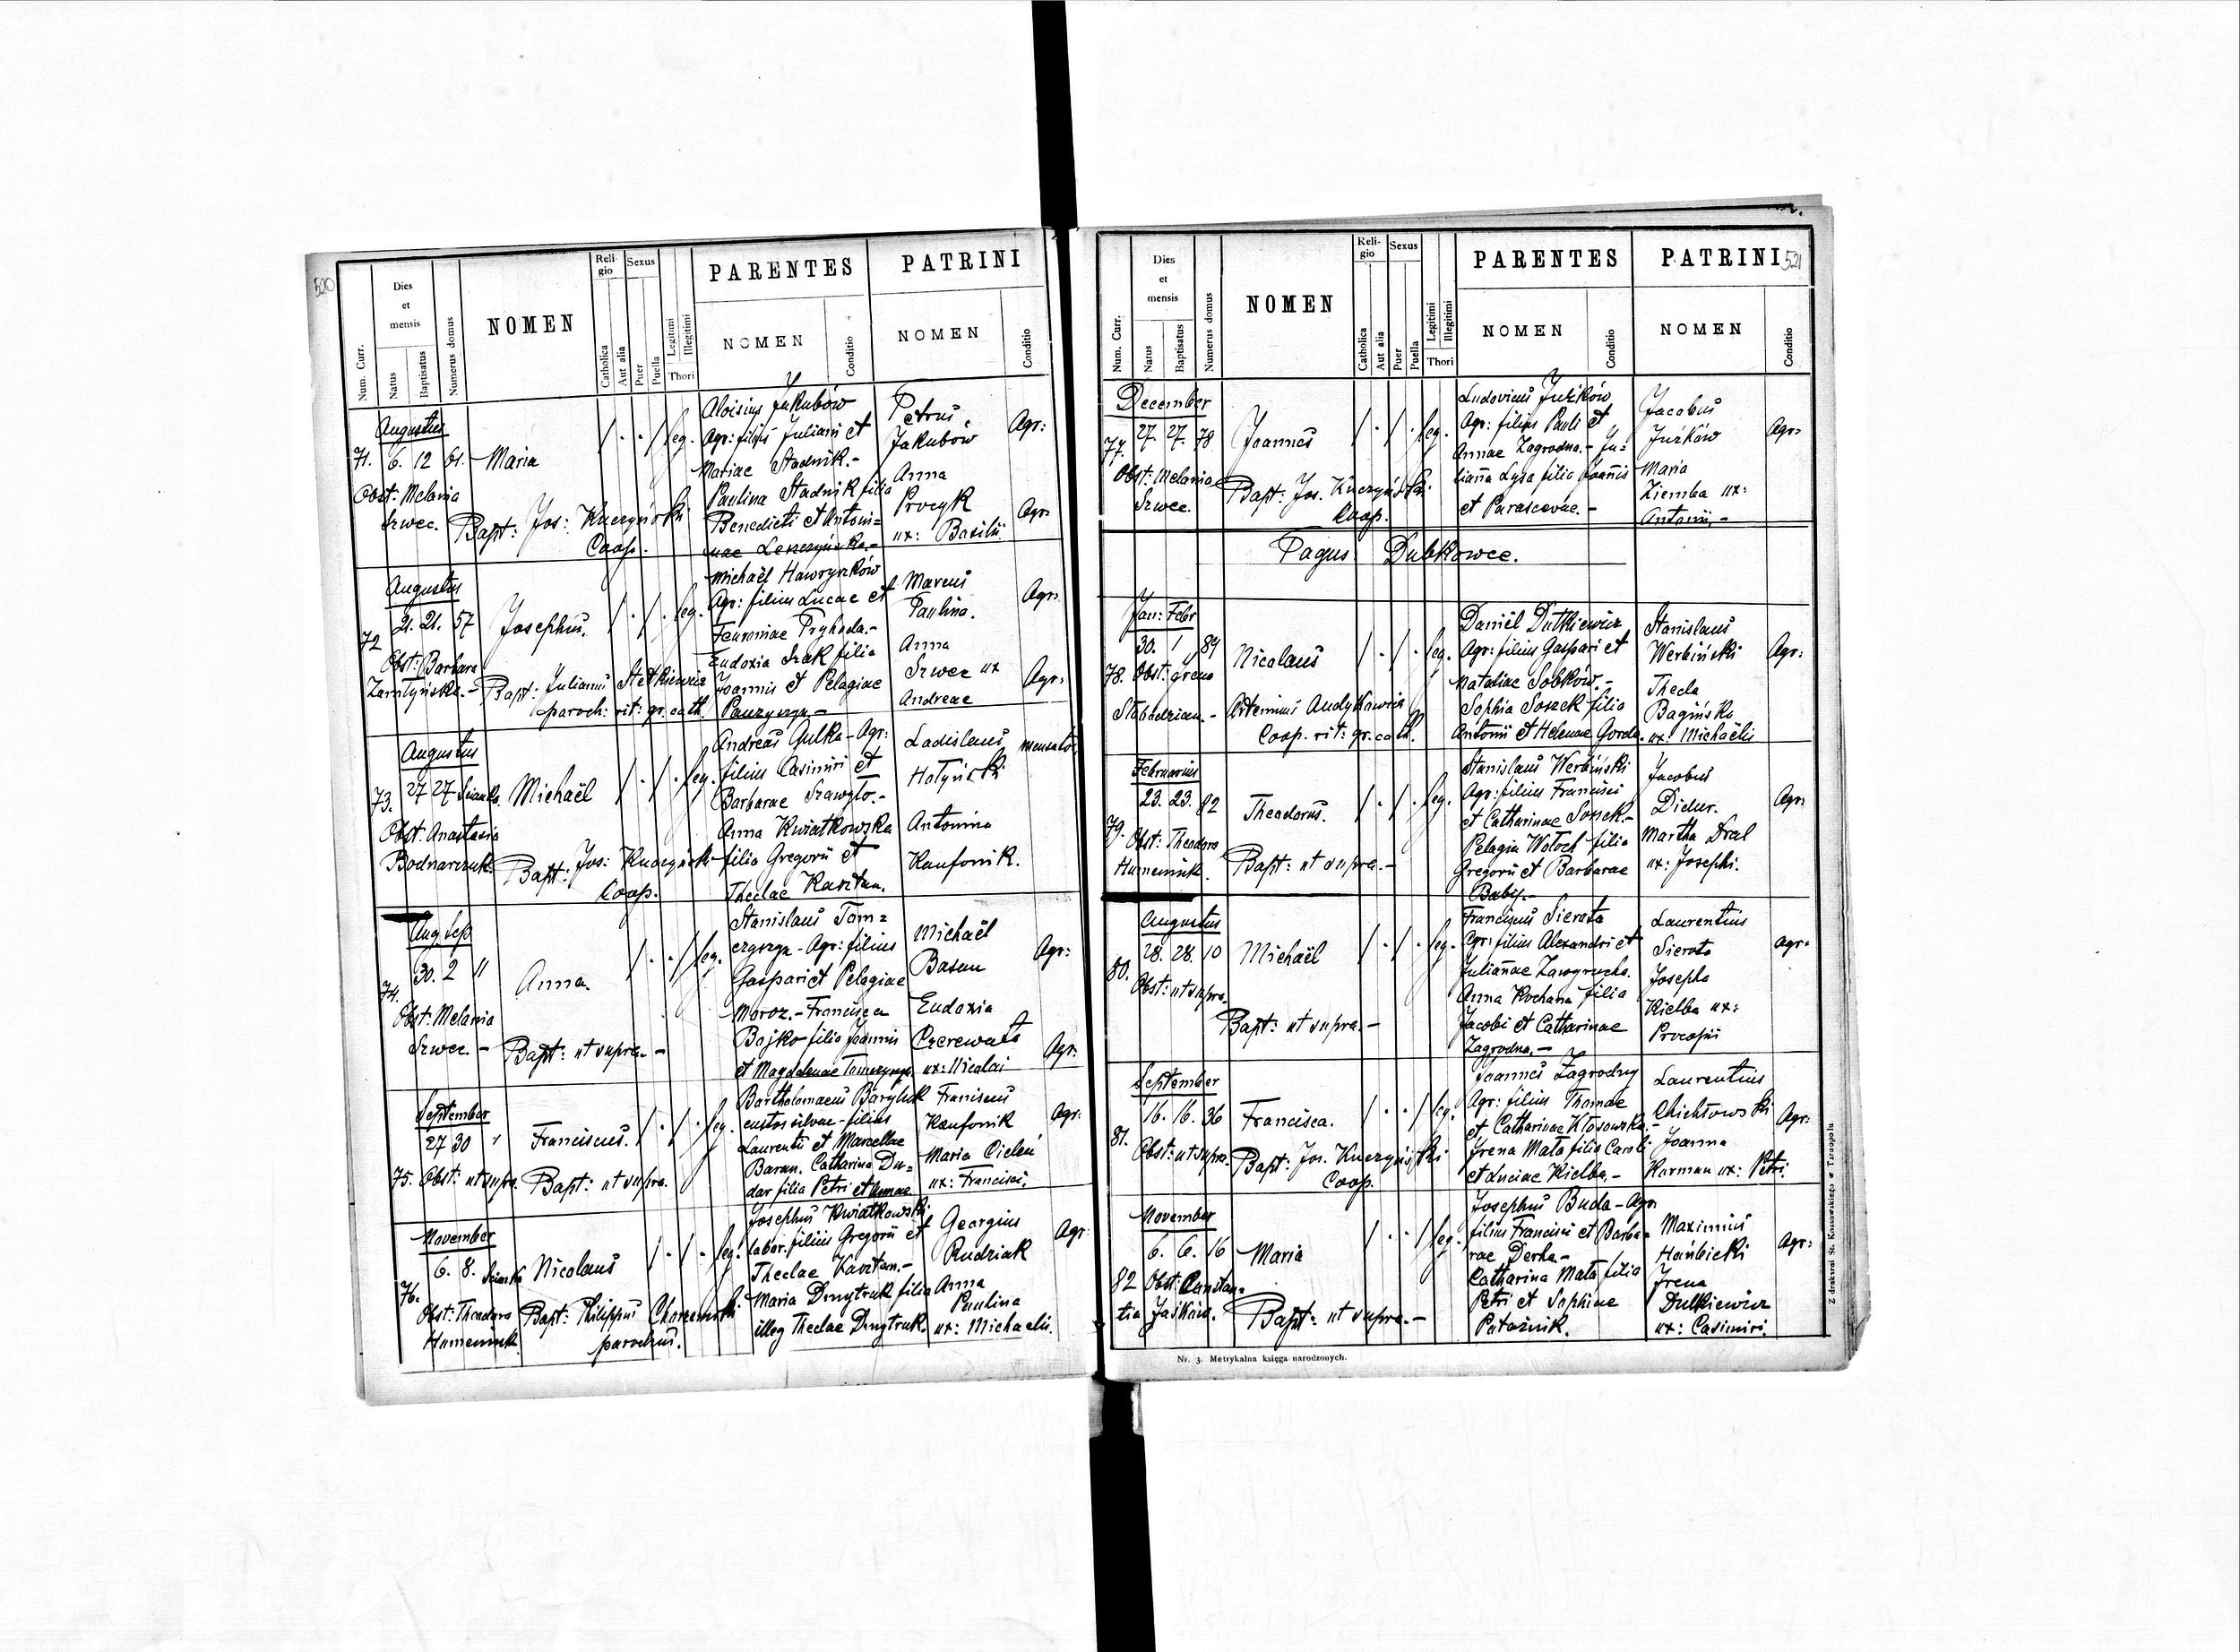 520
Num. Curr.
Dies et mensis
Natus
Baptisatus
Numerus domus
NOMEN
Religio
Catholica
Aut alia
Sexus
Puer
Puella
Legitimi
Illegitimi
Thori
PARENTES
NOMEN
Conditio
PATRINI
NOMEN
Conditio
Augustus
71. 6. 12 61. Maria
Obst: Melania
Szwec.
Bapt: Jos: Kuczyński
Coop.
leg.
Aloisius Jakubów
Agr: filius Juliani et
Mariae Stadnik.-
Paulina Stadnik filia
Benedicti et Antoni=
nae Leszczyńska.-
Petrus
Jakubów
Anna
Procyk
ux: Basilii
Agr:
Agr:
Augustus
72 21. 21. 57 Josephus.
Obst: Barbara
Bapt: Julianus Stetkiewicz
paroch: rit: gr. cath.
leg.
Michaël Hawryszków
Agr: filius Lucae et
Feuroniae Pryhoda.-
Eudoxia Szak filia
Joannis et Pelagiae
Marcus
Paulina.
Anna
Szwec ux
Andreae
Agr:
Agr:
Augustus
73. 27 27 Scianka. Michaël
Obst: Anastasia
Bodnarczuk.
Bapt: Jos: Kuczyński
Coop.
leg.
Andreas Gulka - Agr:
filius Casimiri et
Barbarae Szawyło.-
Anna Kwiatkowska
filia Gregorii et
Theclae Kasztan.
Ladislaus
Hołyński
Antonina
Kanfonik.
Aug. Sep
74. 30. 2 11 Anna.
Obst: Melania
Szwec. -
Bapt: ut supra. -
leg.
Stanislaus Tom=
czyszyn - Agr: filius
Gaspari et Pelagiae
Moroz. - Francisca
Bojko filia Joannis
et Magdalenae Tomczyszyn
Michaël
Basan
Eudoxia
Czerewata
ux: Nicolai
Agr:
Agr:
September
27 30 1 Franciscus.
75. Obst: ut supra. Bapt: ut supra.
leg.
Bartholomaeus Baryluk
custos silvae - filius
Laurentii et Marcellae
Baran. Catharina Du=
dar filia Petri et Annae
Franciscus
Kanfonik
Maria Cieleń
ux: Francisci.
Agr:
November
76. 6. 8. Scianka Nicolaus
Obst: Theodora
Humeniuk.
Bapt: Philippus Chorzemski
parochus.
leg.
Josephus Kwiatkowski
labor. filius Gregorii et
Theclae Kasztan.-
Maria Dmytruk filia
illeg Theclae Dmytruk.
Georgius
Rudziak
Anna
Paulina
ux: Michaelis.
Agr:
521
Num. Curr.
Dies et mensis
Natus
Baptisatus
Numerus domus
NOMEN
Religio
Catholica
Aut alia
Sexus
Puer
Puella
Legitimi
Illegitimi
Thori
PARENTES
NOMEN
Conditio
PATRINI
NOMEN
Conditio
December
77. 27. 27. 78 Joannes
Obst: Melania
Szwec.
Bapt: Jos. Kuczyński
Coop.
leg.
Ludovicus Juźków
Agr: filius Pauli et
Annae Zagrodna. - Ju=
lianna Lysa filia Joannis
et Parascevae. -
Jacobus
Juźków
Maria
Ziemba ux:
Antonii. -
Agr:
Pagus: Dubkowce.
Jan: Febr
30. 1 89 Nicolaus
78. Obst: Irena
Artemius Andykiewicz
Coop. rit: gr. cath.
leg.
Daniël Dutkiewicz
Agr: filius Gaspari et
Nataliae Sobków. -
Sophia Soszek filia
Antonii et Helenae Gorda.
Stanislaus
Werbiński
Thecla
Bagińska
ux: Michaëlis
Agr:
Februarius
79. 23. 23. 82 Theodorus.
Obst: Theodora
Humeniuk.
Bapt: ut supra. -
leg.
Stanislaus Werbiński
Agr: filius Francisci
et Catharinae Soszek.-
Pelagia Wołoch filia
Gregorii et Barbarae
Babij.-
Jacobus
Didur.
Martha Dral
ux: Josephi.
Agr:
Augustus
80. 28. 28. 10 Michaël
Obst: ut supra.
Bapt: ut supra. -
leg.
Franciscus Sierota
Agr: filius Alexandri et
Anna Kochana filia
Jacobi et Catharinae
Zagrodna. -
Laurentius
Sierota
Josepha
Kielba ux:
Procopii
Agr:
September
81. 16. 16. 36 Francisca.
Obst: ut supra.
Bapt: Jos. Kuczyński
Coop.
leg.
Joannes Zagrodny
Agr: filius Thomae
et Catharinae Kłosowska.-
Irena Mata filia Caroli
et Luciae Kielba. -
Laurentius
Chichłowski
Joanna
Karman ux: Petri.
Agr:
November
6. 6. 16 Maria
82 Obst: Constan=
tia Jaśków.
Bapt: ut supra. -
leg.
Josephus Buda - Agr
filius Francisci et Barba=
rae Derka -
Catharina Mata filia
Petri et Sophiae
Pataźnik.
Maximus
Hańbicki
Irena
Dutkiewicz
ux: Casimiri.
Agr:
Nr. 3. Metrykalna księga narodzonych.
Z drukarni St. Kossowskiego w Tarnopolu.